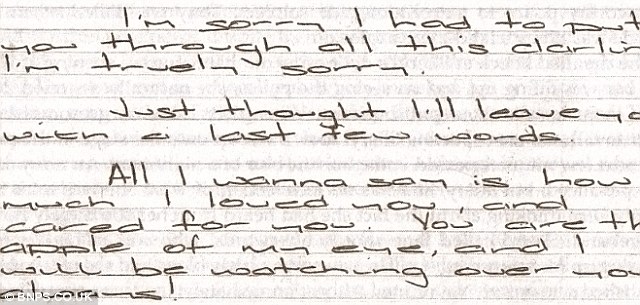 I'm sorry I had to put
you through all this darlin
I'm truely sorry.
Just thought I'll leave yo
with a last few words
All I wanna say is how
much I loved you, and
cared for you. You are th
apple of my eye, and I
will be watching over you
© BNPS.CO.UK